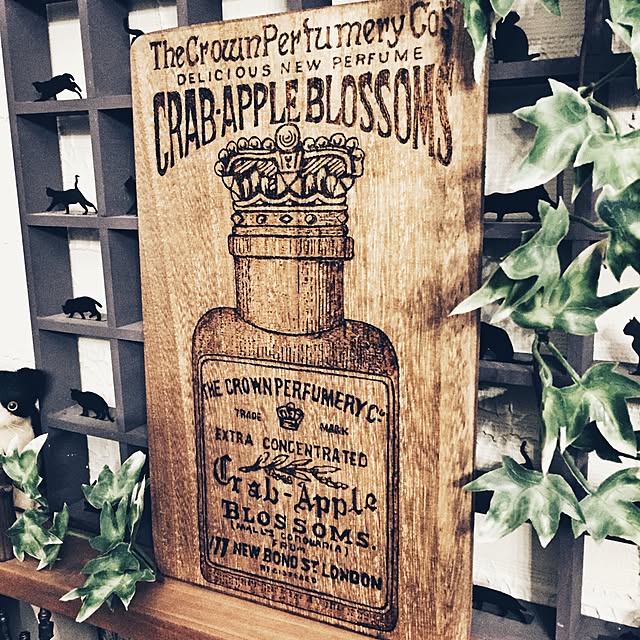 The Crown Perfumery Co's
DELICIOUS NEW PERFUME
CRAB-APPLE BLOSSOMS
THE CROWN PERFUMERY Co
TRADE MARK
EXTRA CONCENTRATED
Crab-Apple
BLOSSOMS.
FROM
177 NEW BOND ST LONDON